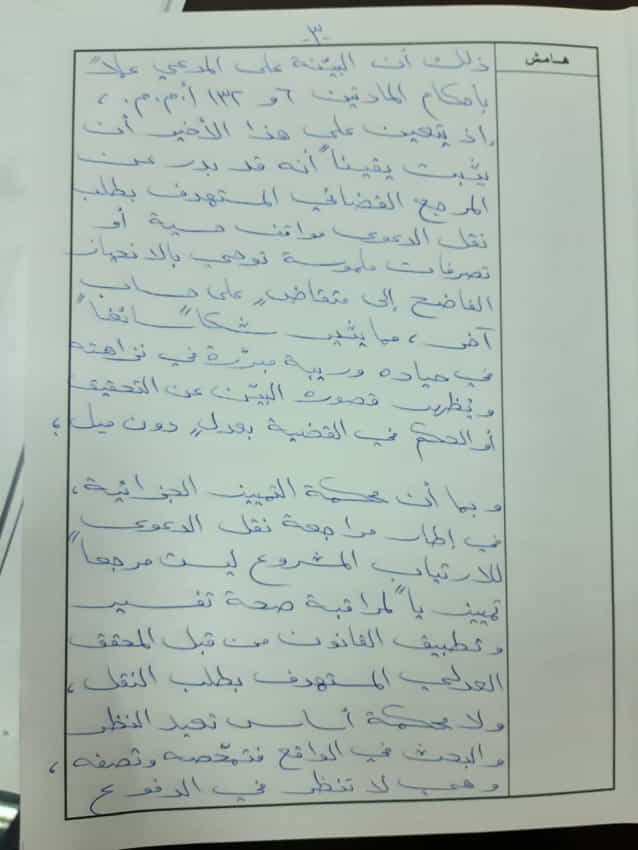 -٣-
هامش
ذلك أن البيّنة على المدعي عملاً
بأحكام المادتين ٦ و ١٣٢ أ.م.م. ،
إذ يتعين على هذا الأخير أن
يثبت يقيناً أنه قد بدر عن
المرجع القضائي المستهدف بطلب
نقل الدعوى مواقف حسية أو
تصرفات ملموسة توحي بالانحياز
الفاضح إلى متقاضٍ على حساب
آخر ، مما يثير شكاً سائغاً
في حياده وريبة مبرّرة في نزاهته
ويظهر قصوره البيّن عن التحقيق
أو الحكم في القضية بعدلٍ دون ميل ؛
و بما أن محكمة التمييز الجزائية،
في إطار مراجعة نقل الدعوى
للارتياب المشروع ليست مرجعاً
تمييزياً لمراقبة صحة تفسير
وتطبيق القانون من قبل المحقق
العدلي المستهدف بطلب النقل ،
ولا محكمة أساس تعيد النظر
والبحث في الواقع فتمحّصه وتصفه ،
وهي لا تنظر في الدفوع